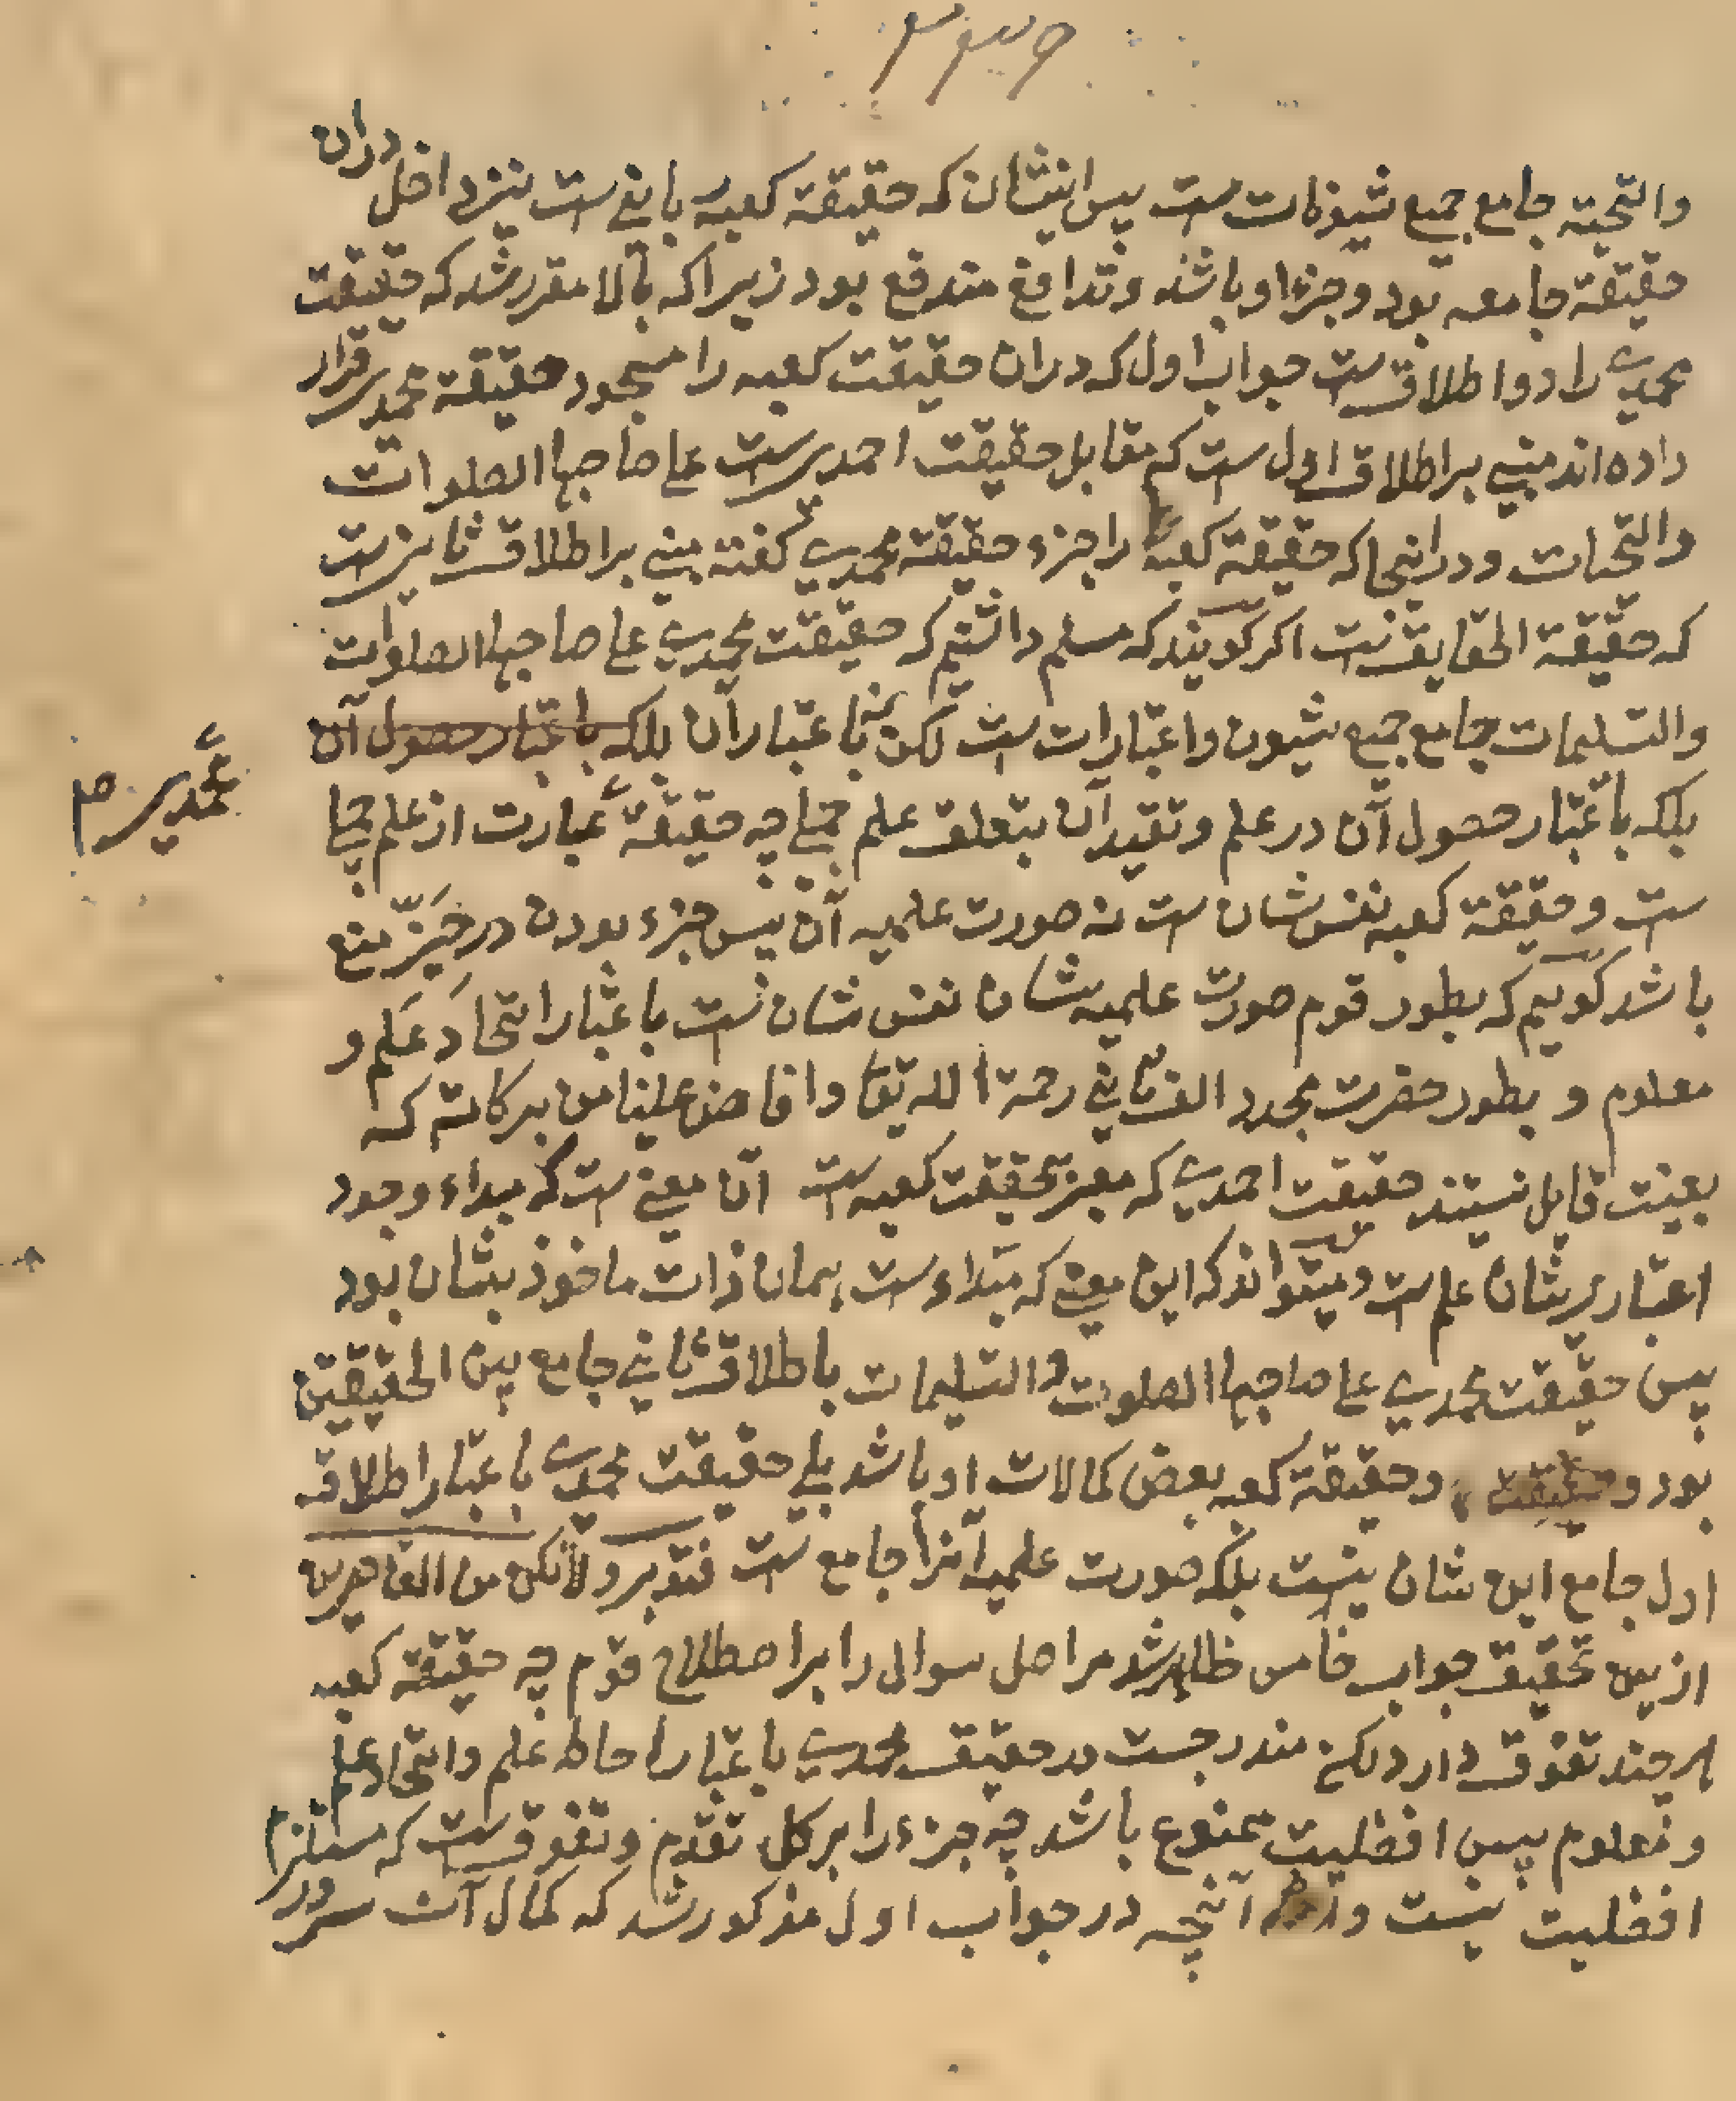 والتحیة جامع جمیع شیونات ست پس اینشان که حقیقة کعبه بانی ست نیز داخل دران
حقیقة جامعه بود و جزء او باشد و تدافع مندفع بود زیرا که بالا مقرر شد که حقیقت
محمدی را دو اطلاق ست جواب اول که دران حقیقت کعبه را مسجود حقیقة محمدی قرار
داده اند مبنی بر اطلاق اول ست که مقابل حقیقت احمدی ست علی صاحبها الصلوات
والتحیات و در اینجا که حقیقة کعبه را جزء حقیقة محمدی گفته مبنی بر اطلاق ثانی ست
که حقیقة الحقایق ست اگر گویند که مسلم داشتیم که حقیقت محمدی علی صاحبها الصلوات
والتسلیمات جامع جمیع شیون و اعتبارات ست لکن نه باعتبار آن بلکه باعتبار حصول آن
بلکه باعتبار حصول آن در علم و تقید آن بتعلق علم جملی چه حقیقة عبارت از علم جملی
محمدی صح
ست و حقیقة کعبه نفس شان ست نه صورت علمیه آن پس جزء بودن در حیّز منع
باشد گوییم که بطور قوم صورت علمیه شان نفس شان ست باعتبار اتحاد علم و
معلوم و بطور حضرت مجدد الف ثانی رحمة الله تعا وافاض علینا من برکاته که
بعینت قایل نیستند حقیقت احمدی که معبر بحقیقت کعبه ست آن معنی ست که مبداء وجود
اعتباری شان علم ست و میتواند که این معنی که مبداء ست همان ذات ماخوذ بشان بود
پس حقیقت محمدی علی صاحبها الصلوت والتسلیمات باطلاق ثانی جامع بین الحقیقتین
بود و حقیقت و حقیقة کعبه بعض کمالات او باشد بلی حقیقت محمدی باعتبار اطلاق
اول جامع این شان نیست بلکه صورت علمیه آنرا جامع ست فتدبر ولا تکن من القاصرین
ازین تحقیق جواب خامس ظاهر شد مر اصل سوال را بر اصطلاح قوم چه حقیقة کعبه
هرچند تفوق دارد لکن مندرجست در حقیقت محمدی باعتبار احاطه علم و اتحاد علم
و معلوم پس افضلیت ممنوع باشد چه جزء را بر کل تقدم و تفوق ست که مستلزم
افضلیت نیست و آنچه در جواب اول مذکور شد که کمال آن سرور